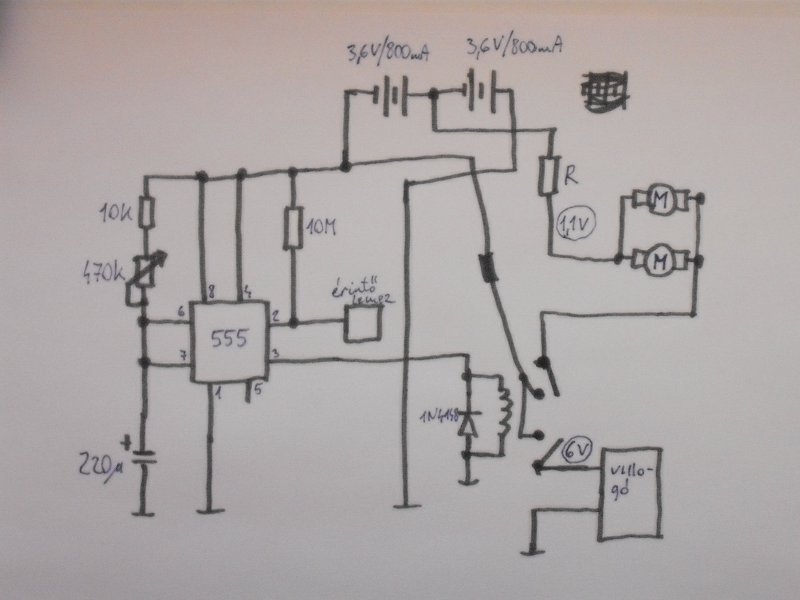 3,6V/800mA
3,6V/800mA
10K
470K
10M
R
1,1V
M
M
érintő
lemez
8
4
6
2
555
7
3
1
5
1N4148
220µ
+
6V
villo-
gó